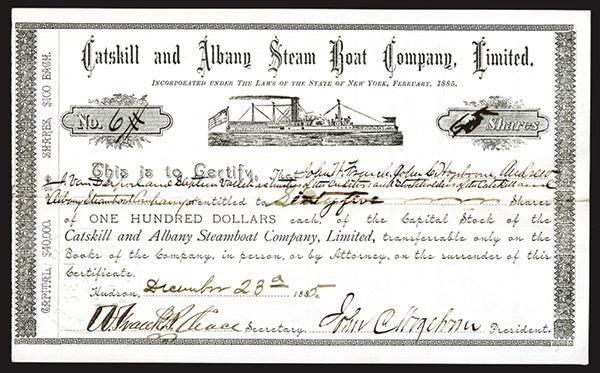 Catskill and Albany Steam Boat Company, Limited.
Incorporated under the Laws of the State of New York, February, 1885.
No. 64
65 Shares
This is to Certify, That John H. Francis, John C. Hogeboom, Andrew
J. Van and Baptiste as trustees of the Creditors and Stockholders of the Catskill and
Albany Steamboat Company entitled to Sixty five Shares
of ONE HUNDRED DOLLARS each, of the Capital Stock of the
Catskill and Albany Steamboat Company, Limited, transferrable only on the
Books of the Company, in person, or by Attorney, on the surrender of this
Certificate.
Hudson, December 23d 1885.
Secretary. John C Hogeboom President.
CAPITAL, $40,000. SHARES, $100 EACH.